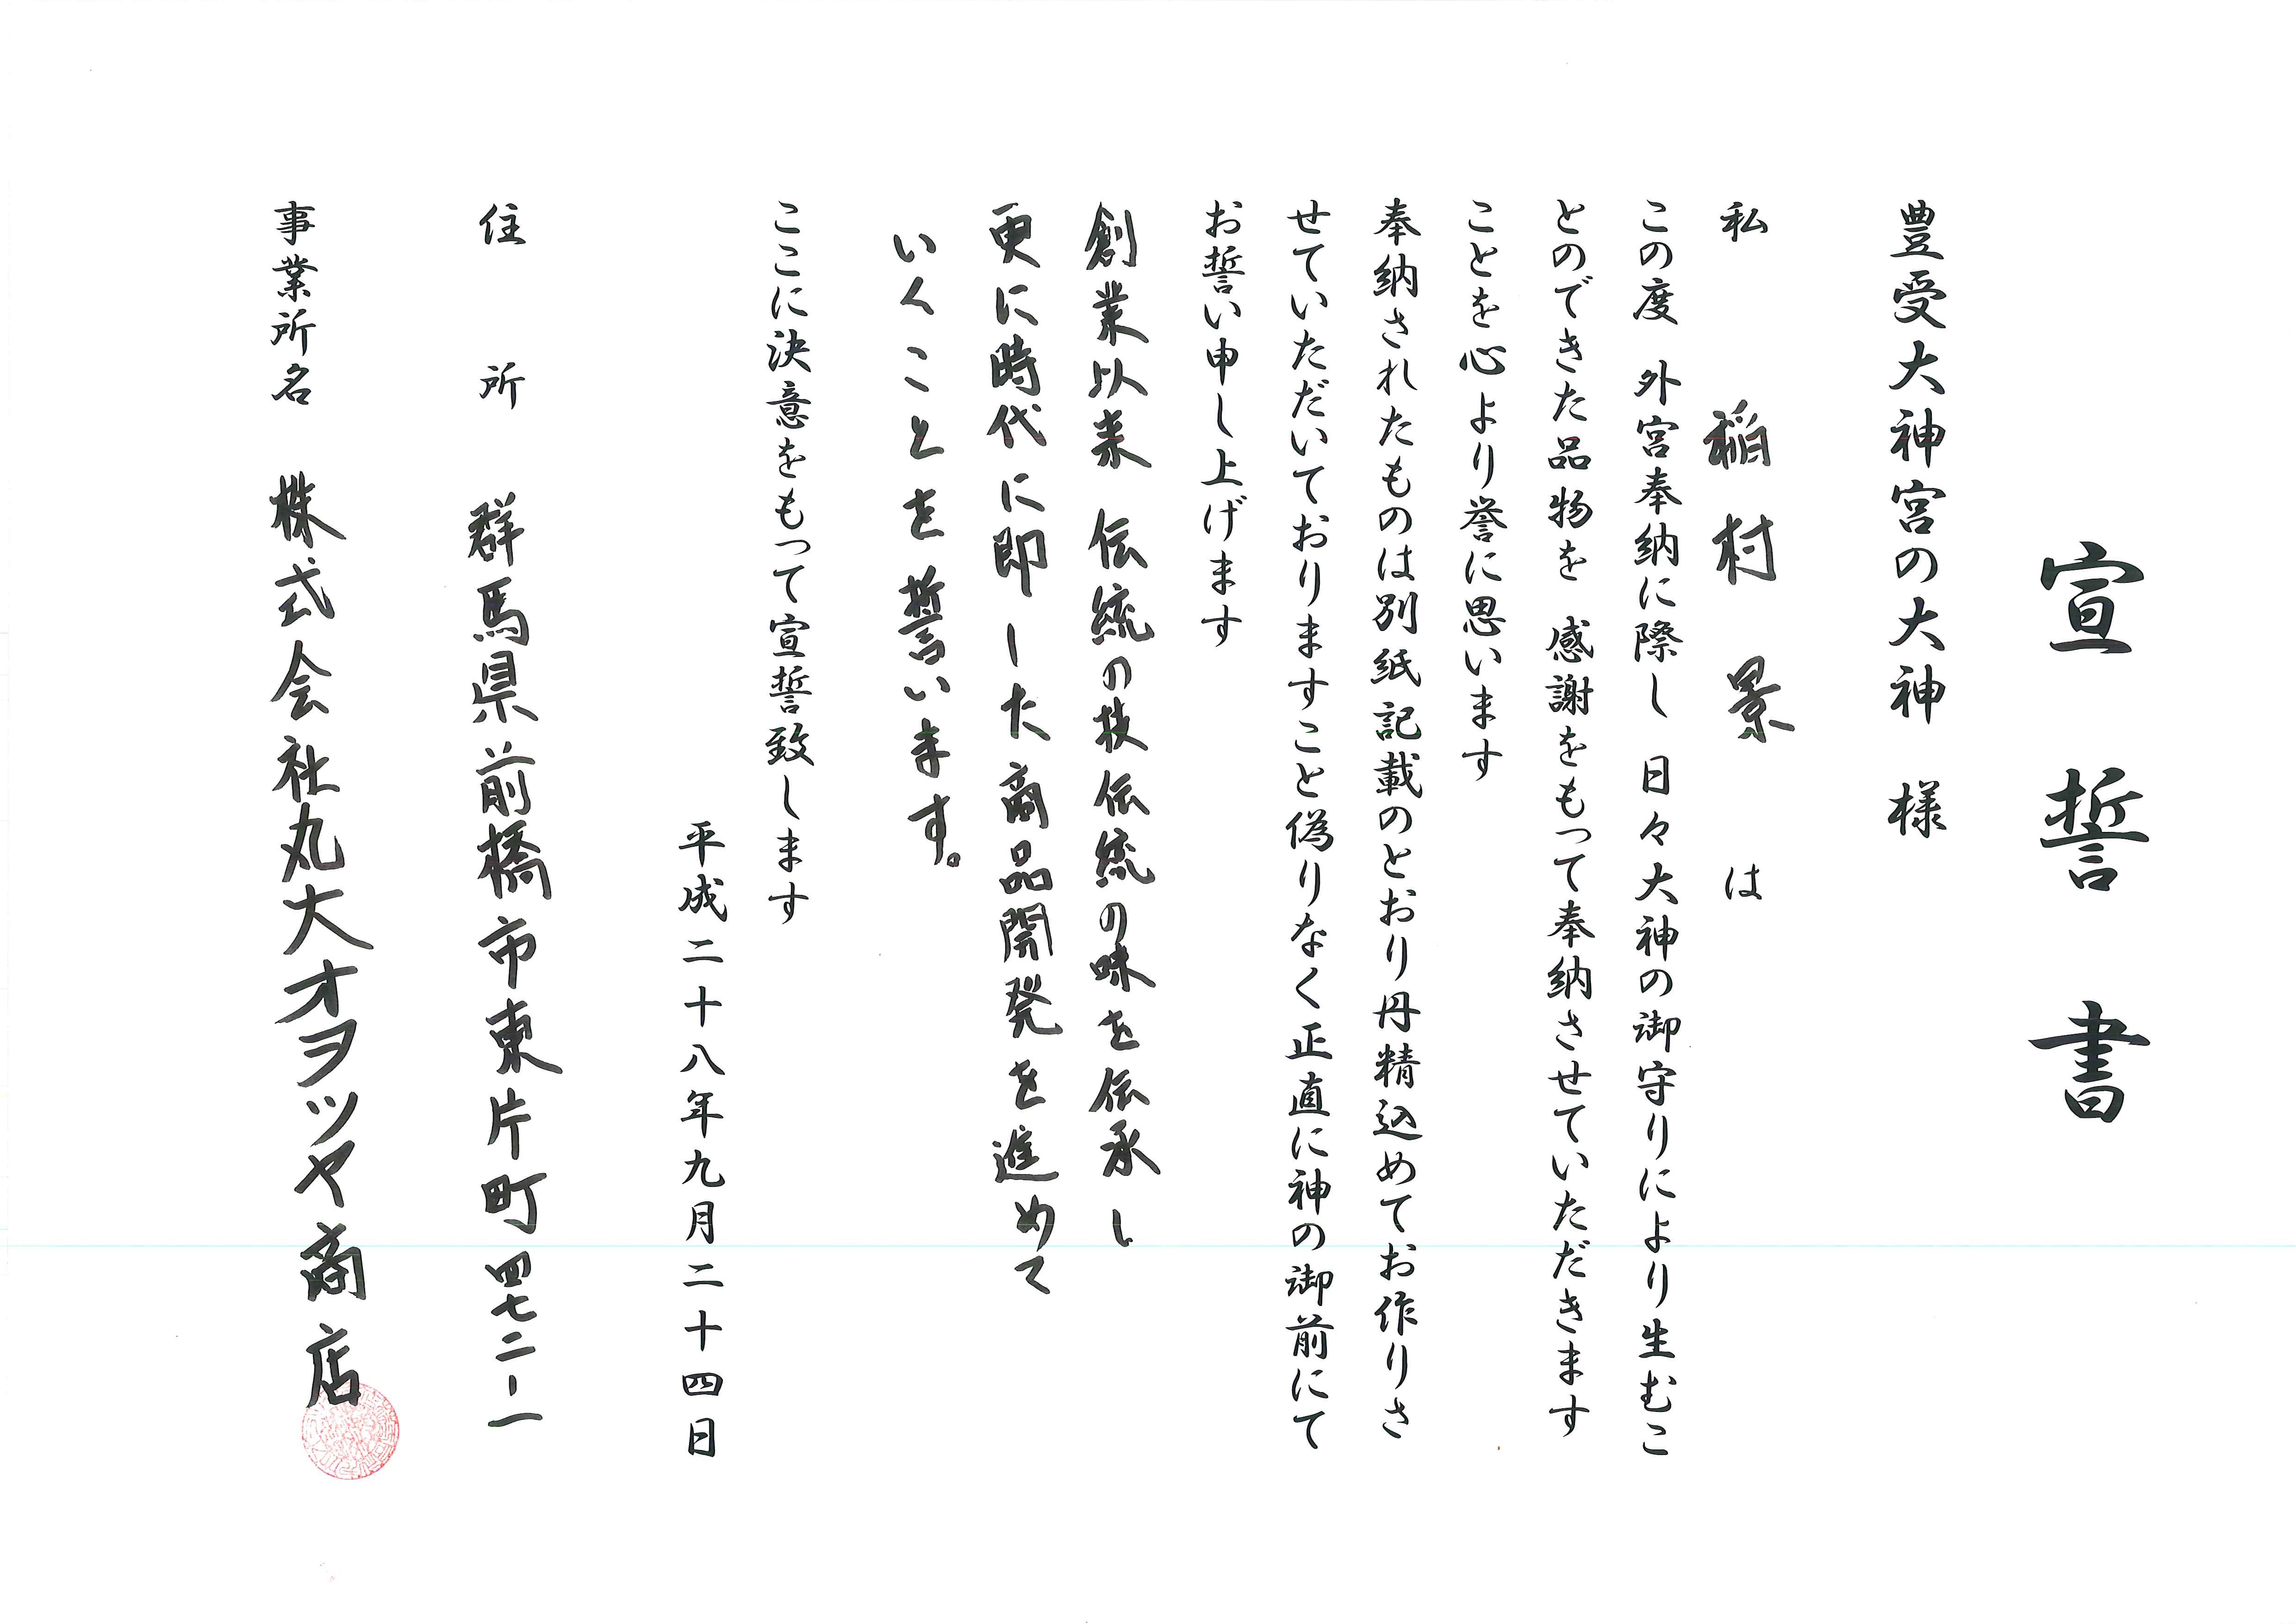 宣誓書
豊受大神宮の大神　様
私　稲村　景　は
この度　外宮奉納に際し　日々大神の御守りにより生むこ
とのできた品物を　感謝をもって奉納させていただきます
ことを心より誉に思います
奉納されたものは別紙記載のとおり丹精込めてお作りさ
せていただいておりますこと偽りなく正直に神の御前にて
お誓い申し上げます
創業以来　伝統の技伝統の味を伝承し
更に時代に即した商品開発を進めて
いくことを誓います。
ここに決意をもって宣誓致します
平成二十八年九月二十四日
住所　群馬県前橋市東片町四七二-一
事業所名　株式会社丸大オヲツヤ商店